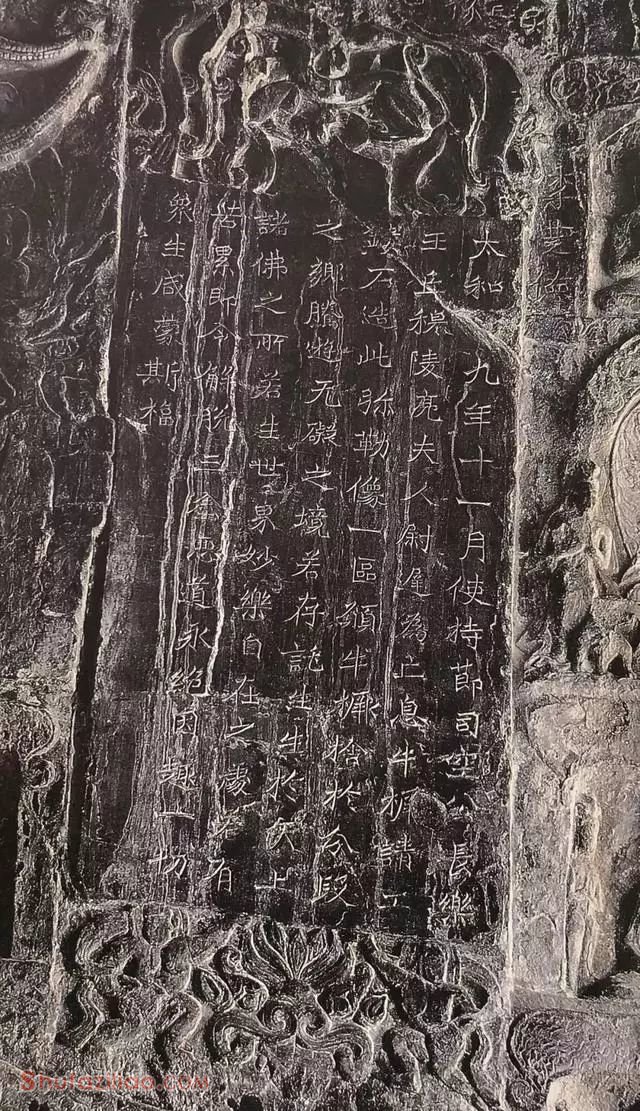 太和九年十一月使持節司空公長樂
王丘穆陵亮夫人尉遲為亡息牛橛請工
鏤石造此弥勒像一區願牛橛捨於分段
之鄉騰遊无礙之境若存託生生於天上
諸佛之所若生世界妙樂自在之處若有
苦累即令解脫三塗惡道永絕因趣一切
眾生咸蒙斯福
Shufaziliao.COM